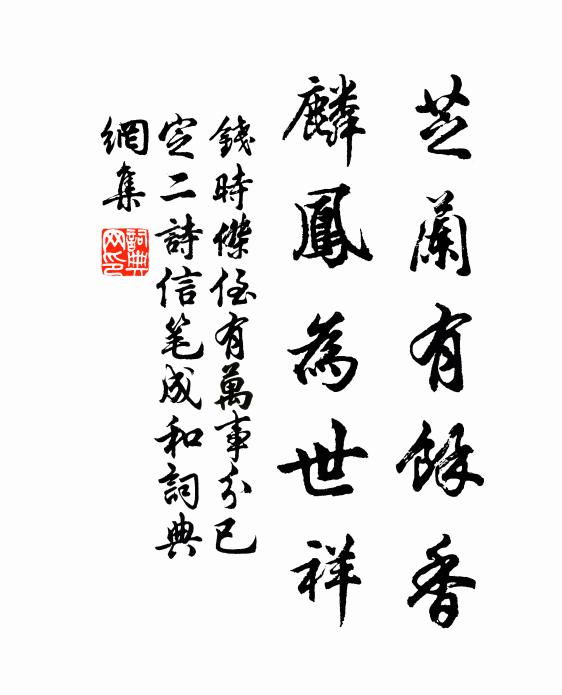 芝蘭有餘香
麟鳳為世祥
錢時傑侄有萬事分已
定二詩信笔成和詞典
網集
詞典网印